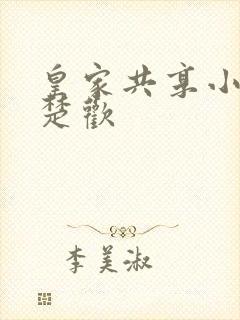 皇家共享小
楚歡
李美淑